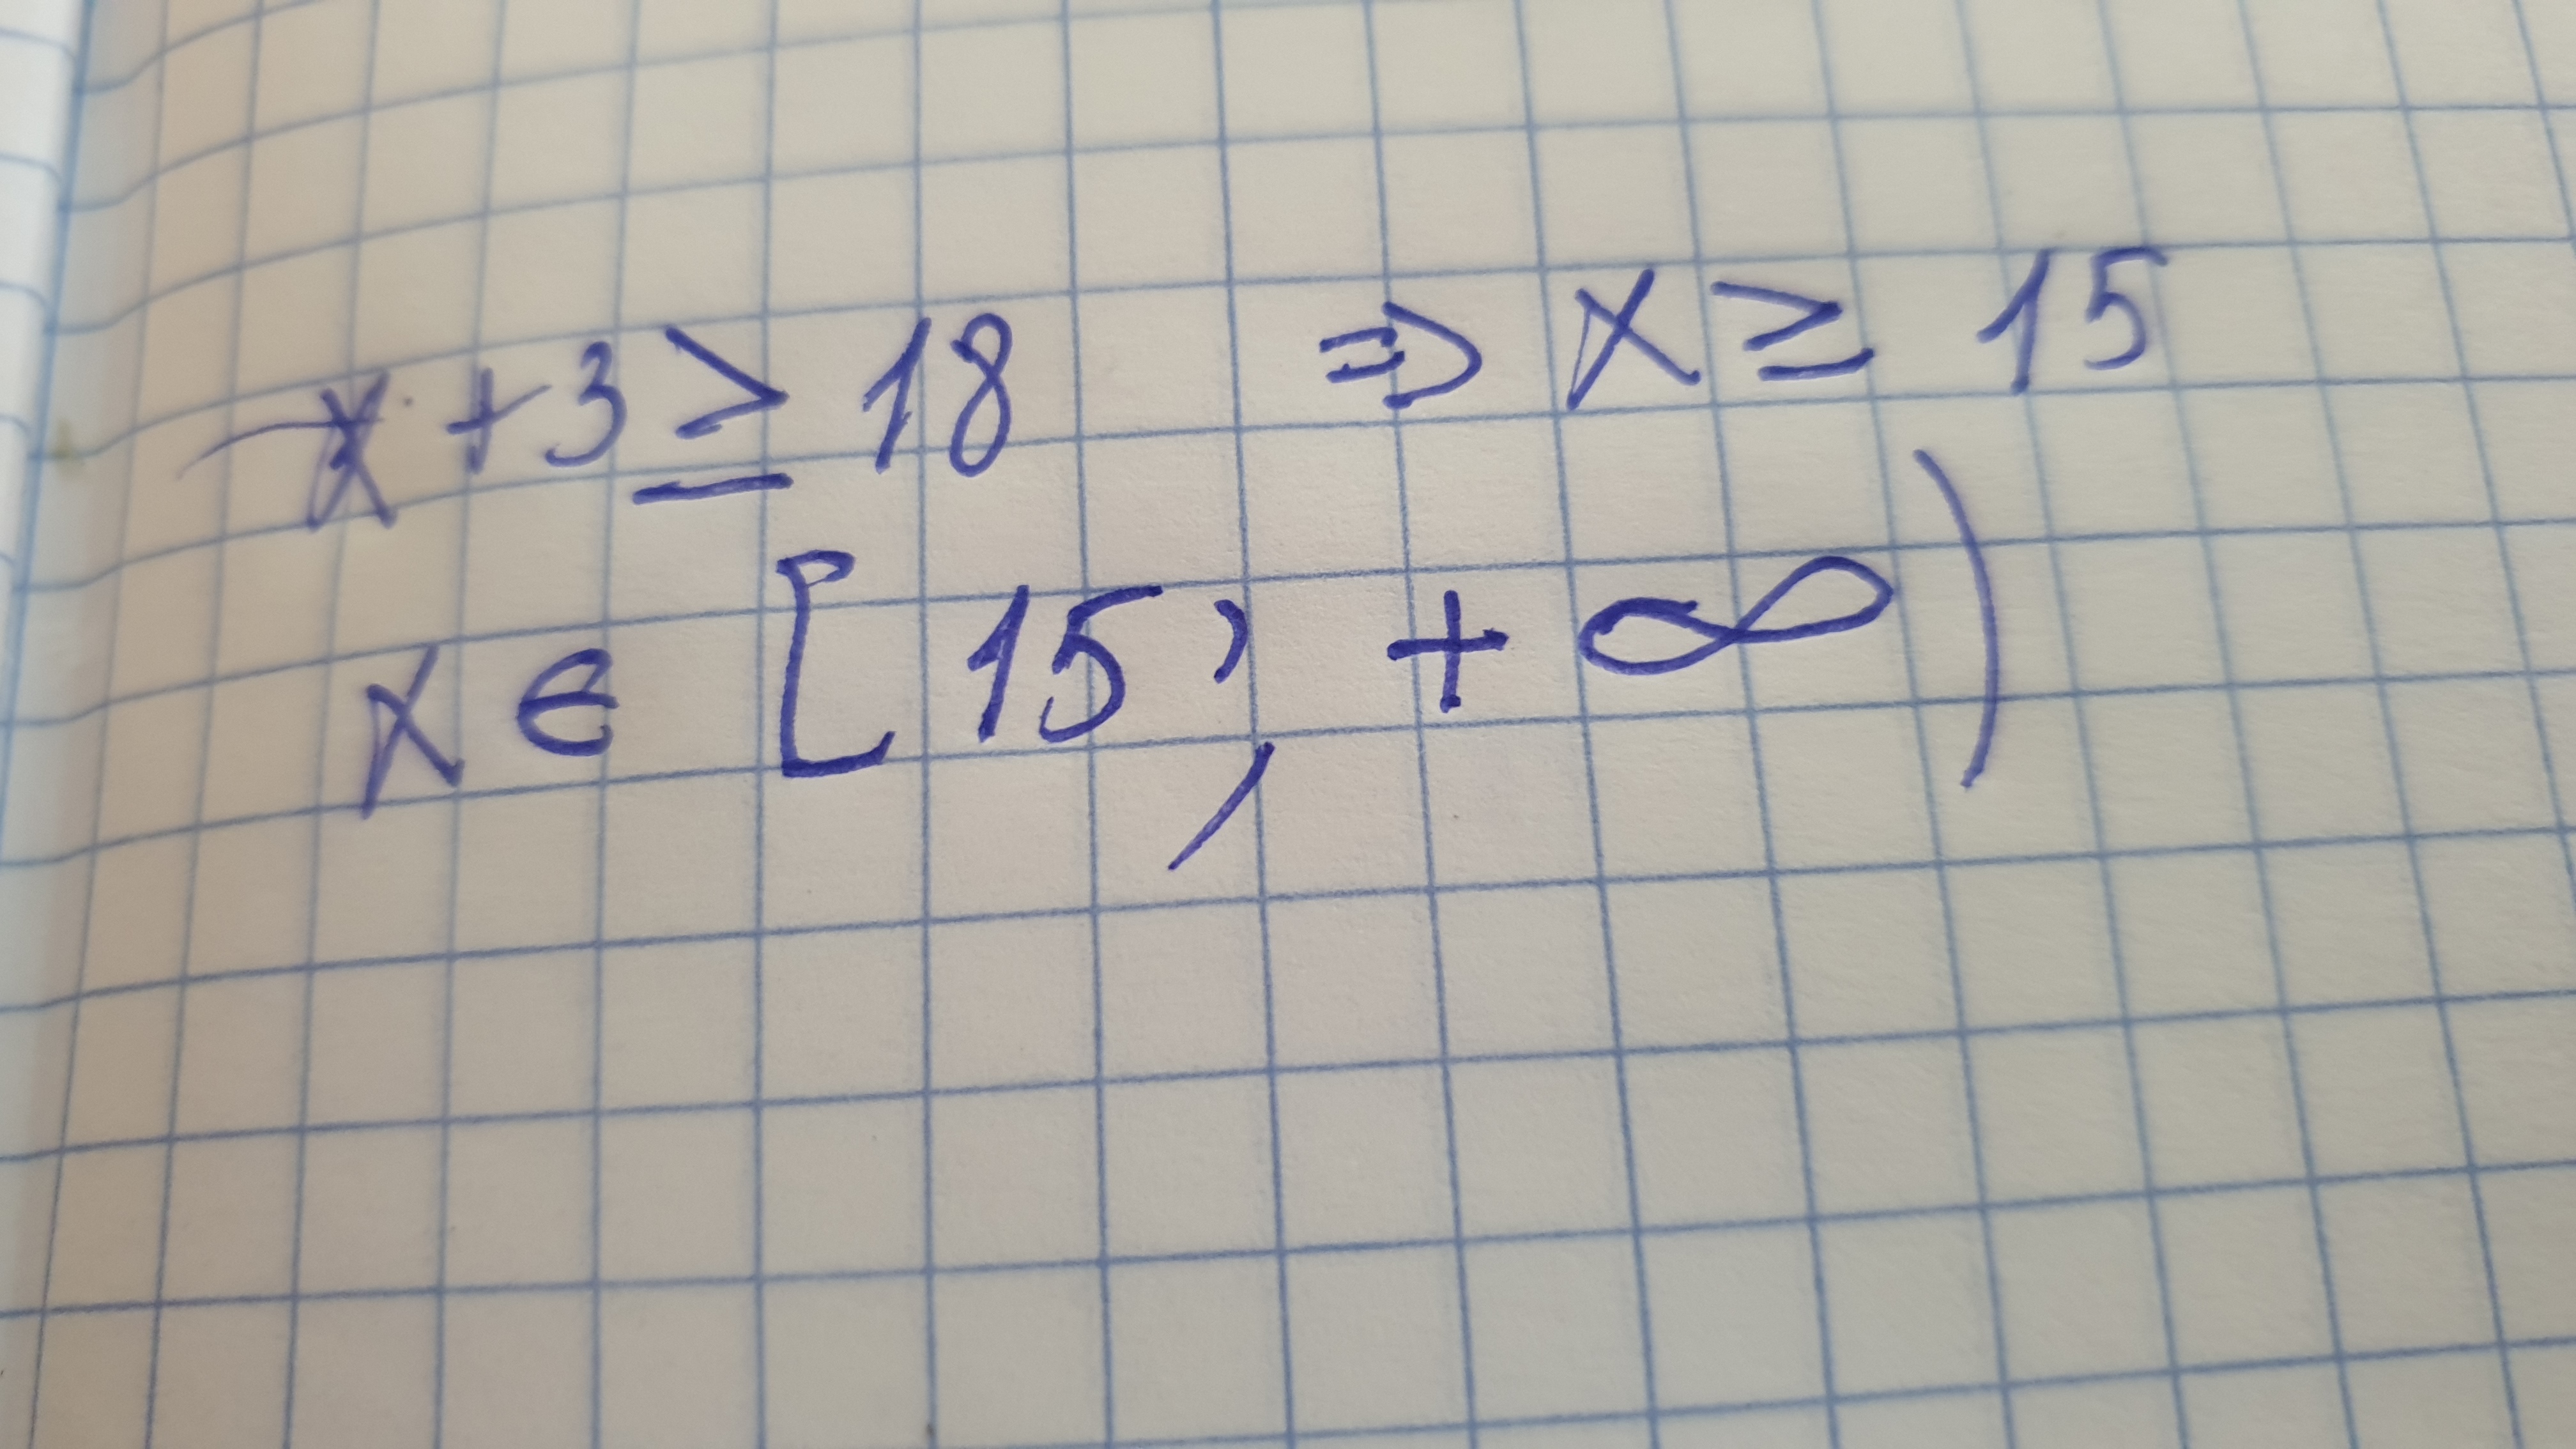 x + 3 ≥ 18 ⇒ x ≥ 15
x ∈ [15, +∞)